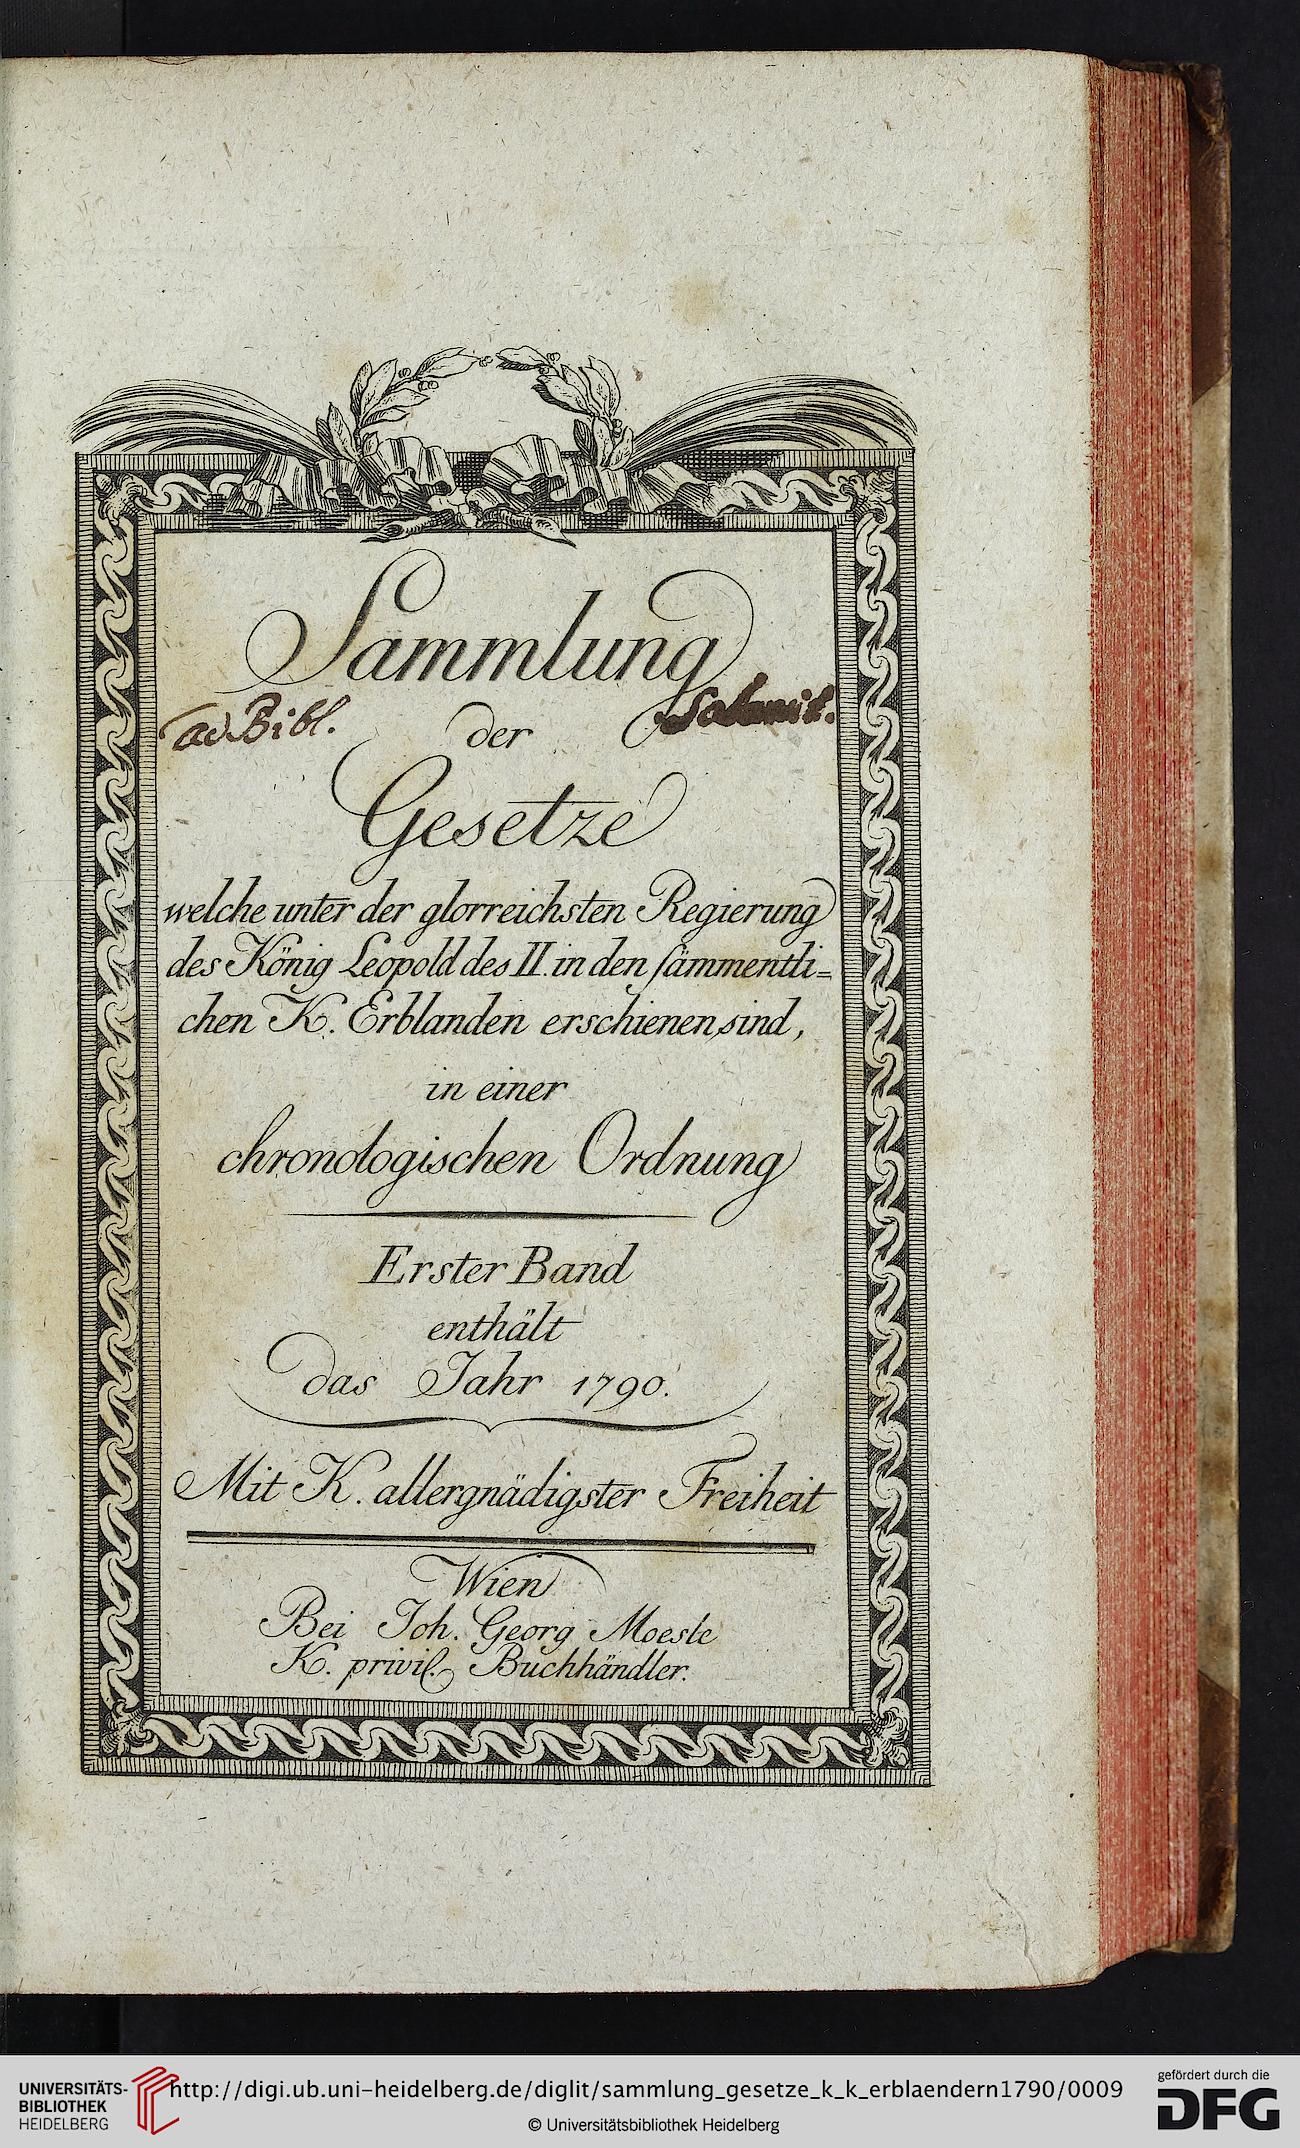 Sammlung
ad Bibl.
der
Gesetze
welche unter der glorreichsten Regierung
des König Leopold des II. in den sämmentli=
chen K. Erblanden erschienen sind,
in einer
chronologischen Ordnung
Erster Band
enthält
das Jahr 1790.
Mit K. allergnädigster Freiheit
Wien
Bei Joh. Georg Moesle
K. privil. Buchhändler.
UNIVERSITÄTS-
BIBLIOTHEK
HEIDELBERG
http://digi.ub.uni-heidelberg.de/diglit/sammlung_gesetze_k_k_erblaendern1790/0009
© Universitätsbibliothek Heidelberg
gefördert durch die
DFG